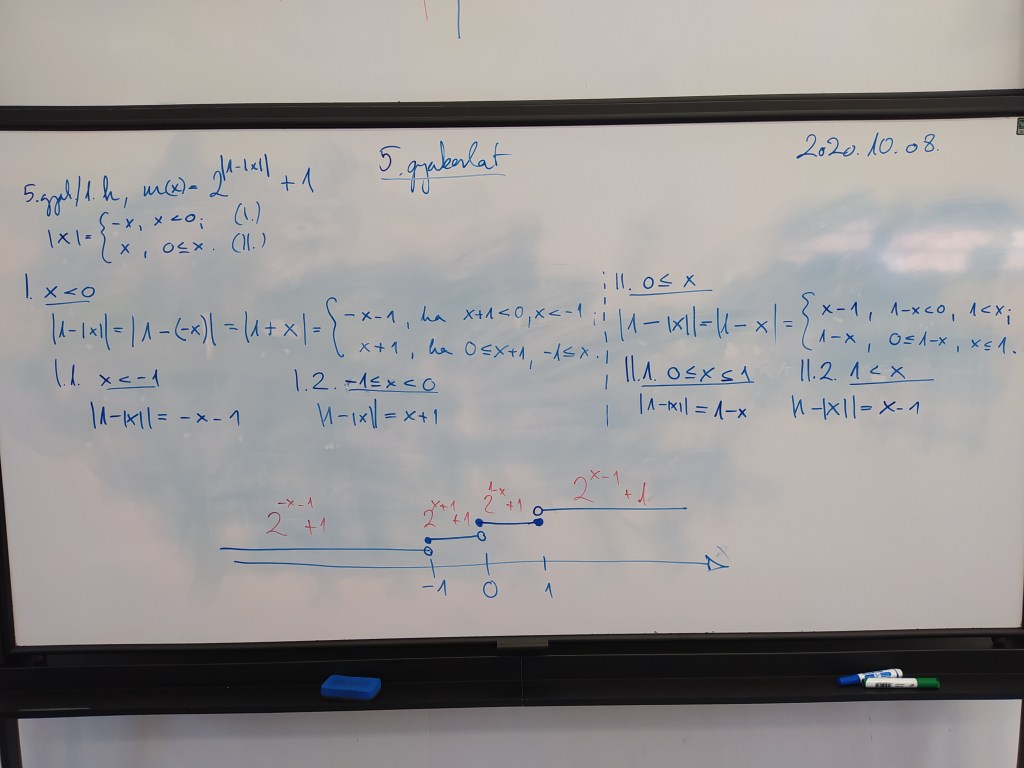 5. gyakorlat
2020.10.08.
5. gyak/1.h, m(x)= 2^{|1-|x||} + 1
|x|= { -x, x<0; (I.)
x, 0≤x. (II.)
I. x<0
|1-|x||=|1-(-x)|=|1+x|= { -x-1, ha x+1<0, x<-1;
x+1, ha 0≤x+1, -1≤x.
I.1. x<-1
|1-|x||= -x-1
I.2. -1≤x<0
|1-|x||= x+1
II. 0≤x
|1-|x||=|1-x|= { x-1, 1-x<0, 1<x;
1-x, 0≤1-x, x≤1.
II.1. 0≤x≤1
|1-|x||=1-x
II.2. 1<x
|1-|x||=x-1
2^{-x-1}+1 2^{x+1}+1 2^{1-x}+1 2^{x-1}+1
-1 0 1